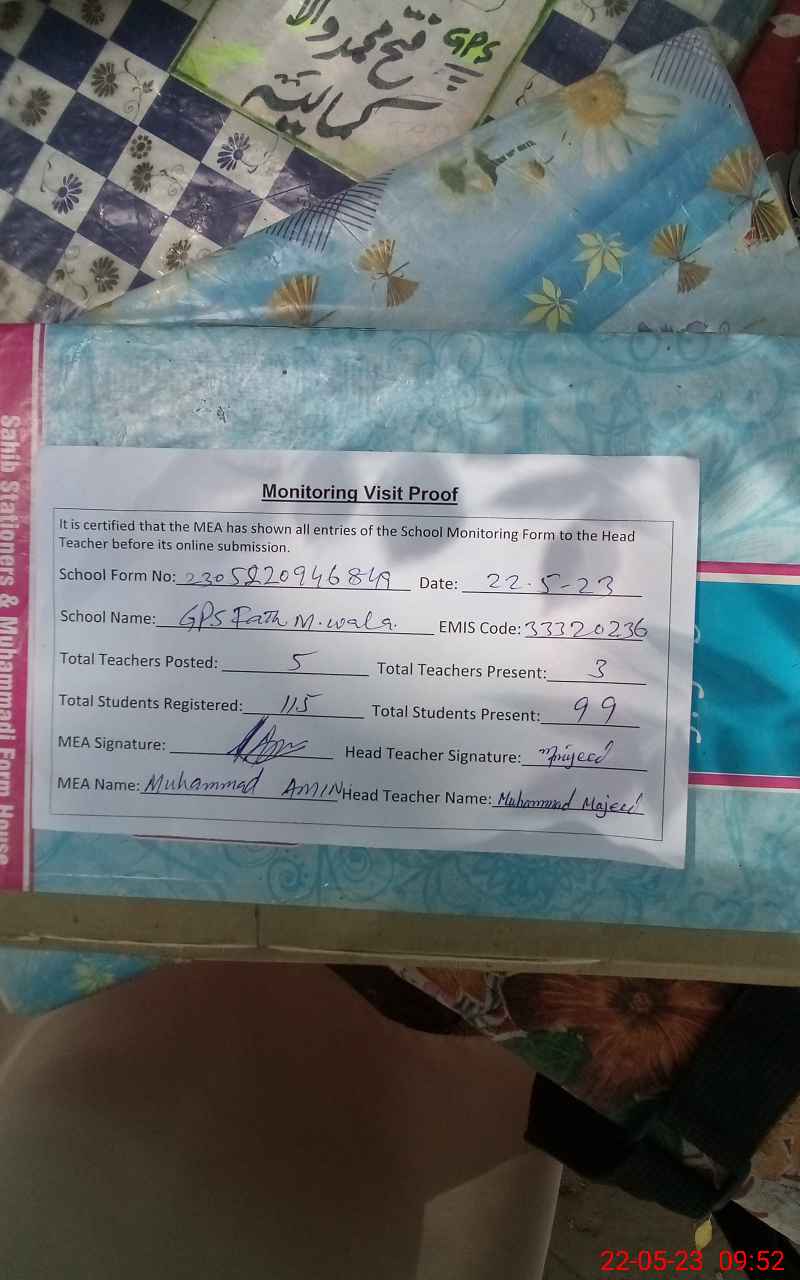 GPS
فتح محمد والا
کمالیہ
Sahib Stationers & Muhammadi Form House
Monitoring Visit Proof
It is certified that the MEA has shown all entries of the School Monitoring Form to the Head
Teacher before its online submission.
School Form No: 2305220946849 Date: 22-5-23
School Name: GPS Fath M.wala. EMIS Code: 33320236
Total Teachers Posted: 5 Total Teachers Present: 3
Total Students Registered: 115 Total Students Present: 99
MEA Signature: Head Teacher Signature: Majeed
MEA Name: Muhammad AMIN Head Teacher Name: Muhammad Majeed
22-05-23 09:52